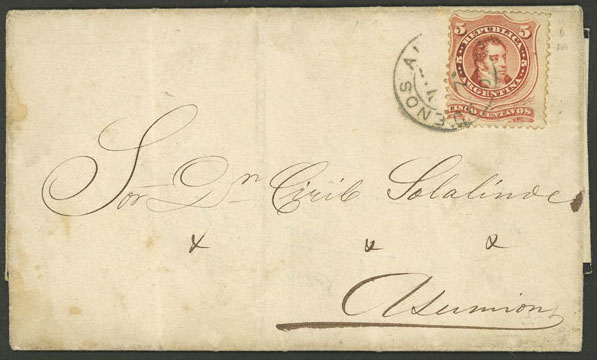 5 REPUBLICA 5
5 5
ARGENTINA
CINCO CENTAVOS
BUENOS A
Sor Dn Cirilo Solalinde
x x x
Asuncion